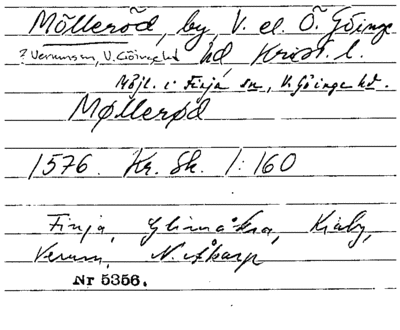 Mölleröd, by, V. el. Ö. Göinge
? Verumsn, V. Göinge hd hd Krist. l.
Möjl. i Finja sn, V. Göinge hd.
Møllerød
1576. Kr. Sk. 1:160
Finja, Glimåkra, Kiaby,
Verum, N. Åkarp
Nr 5356.